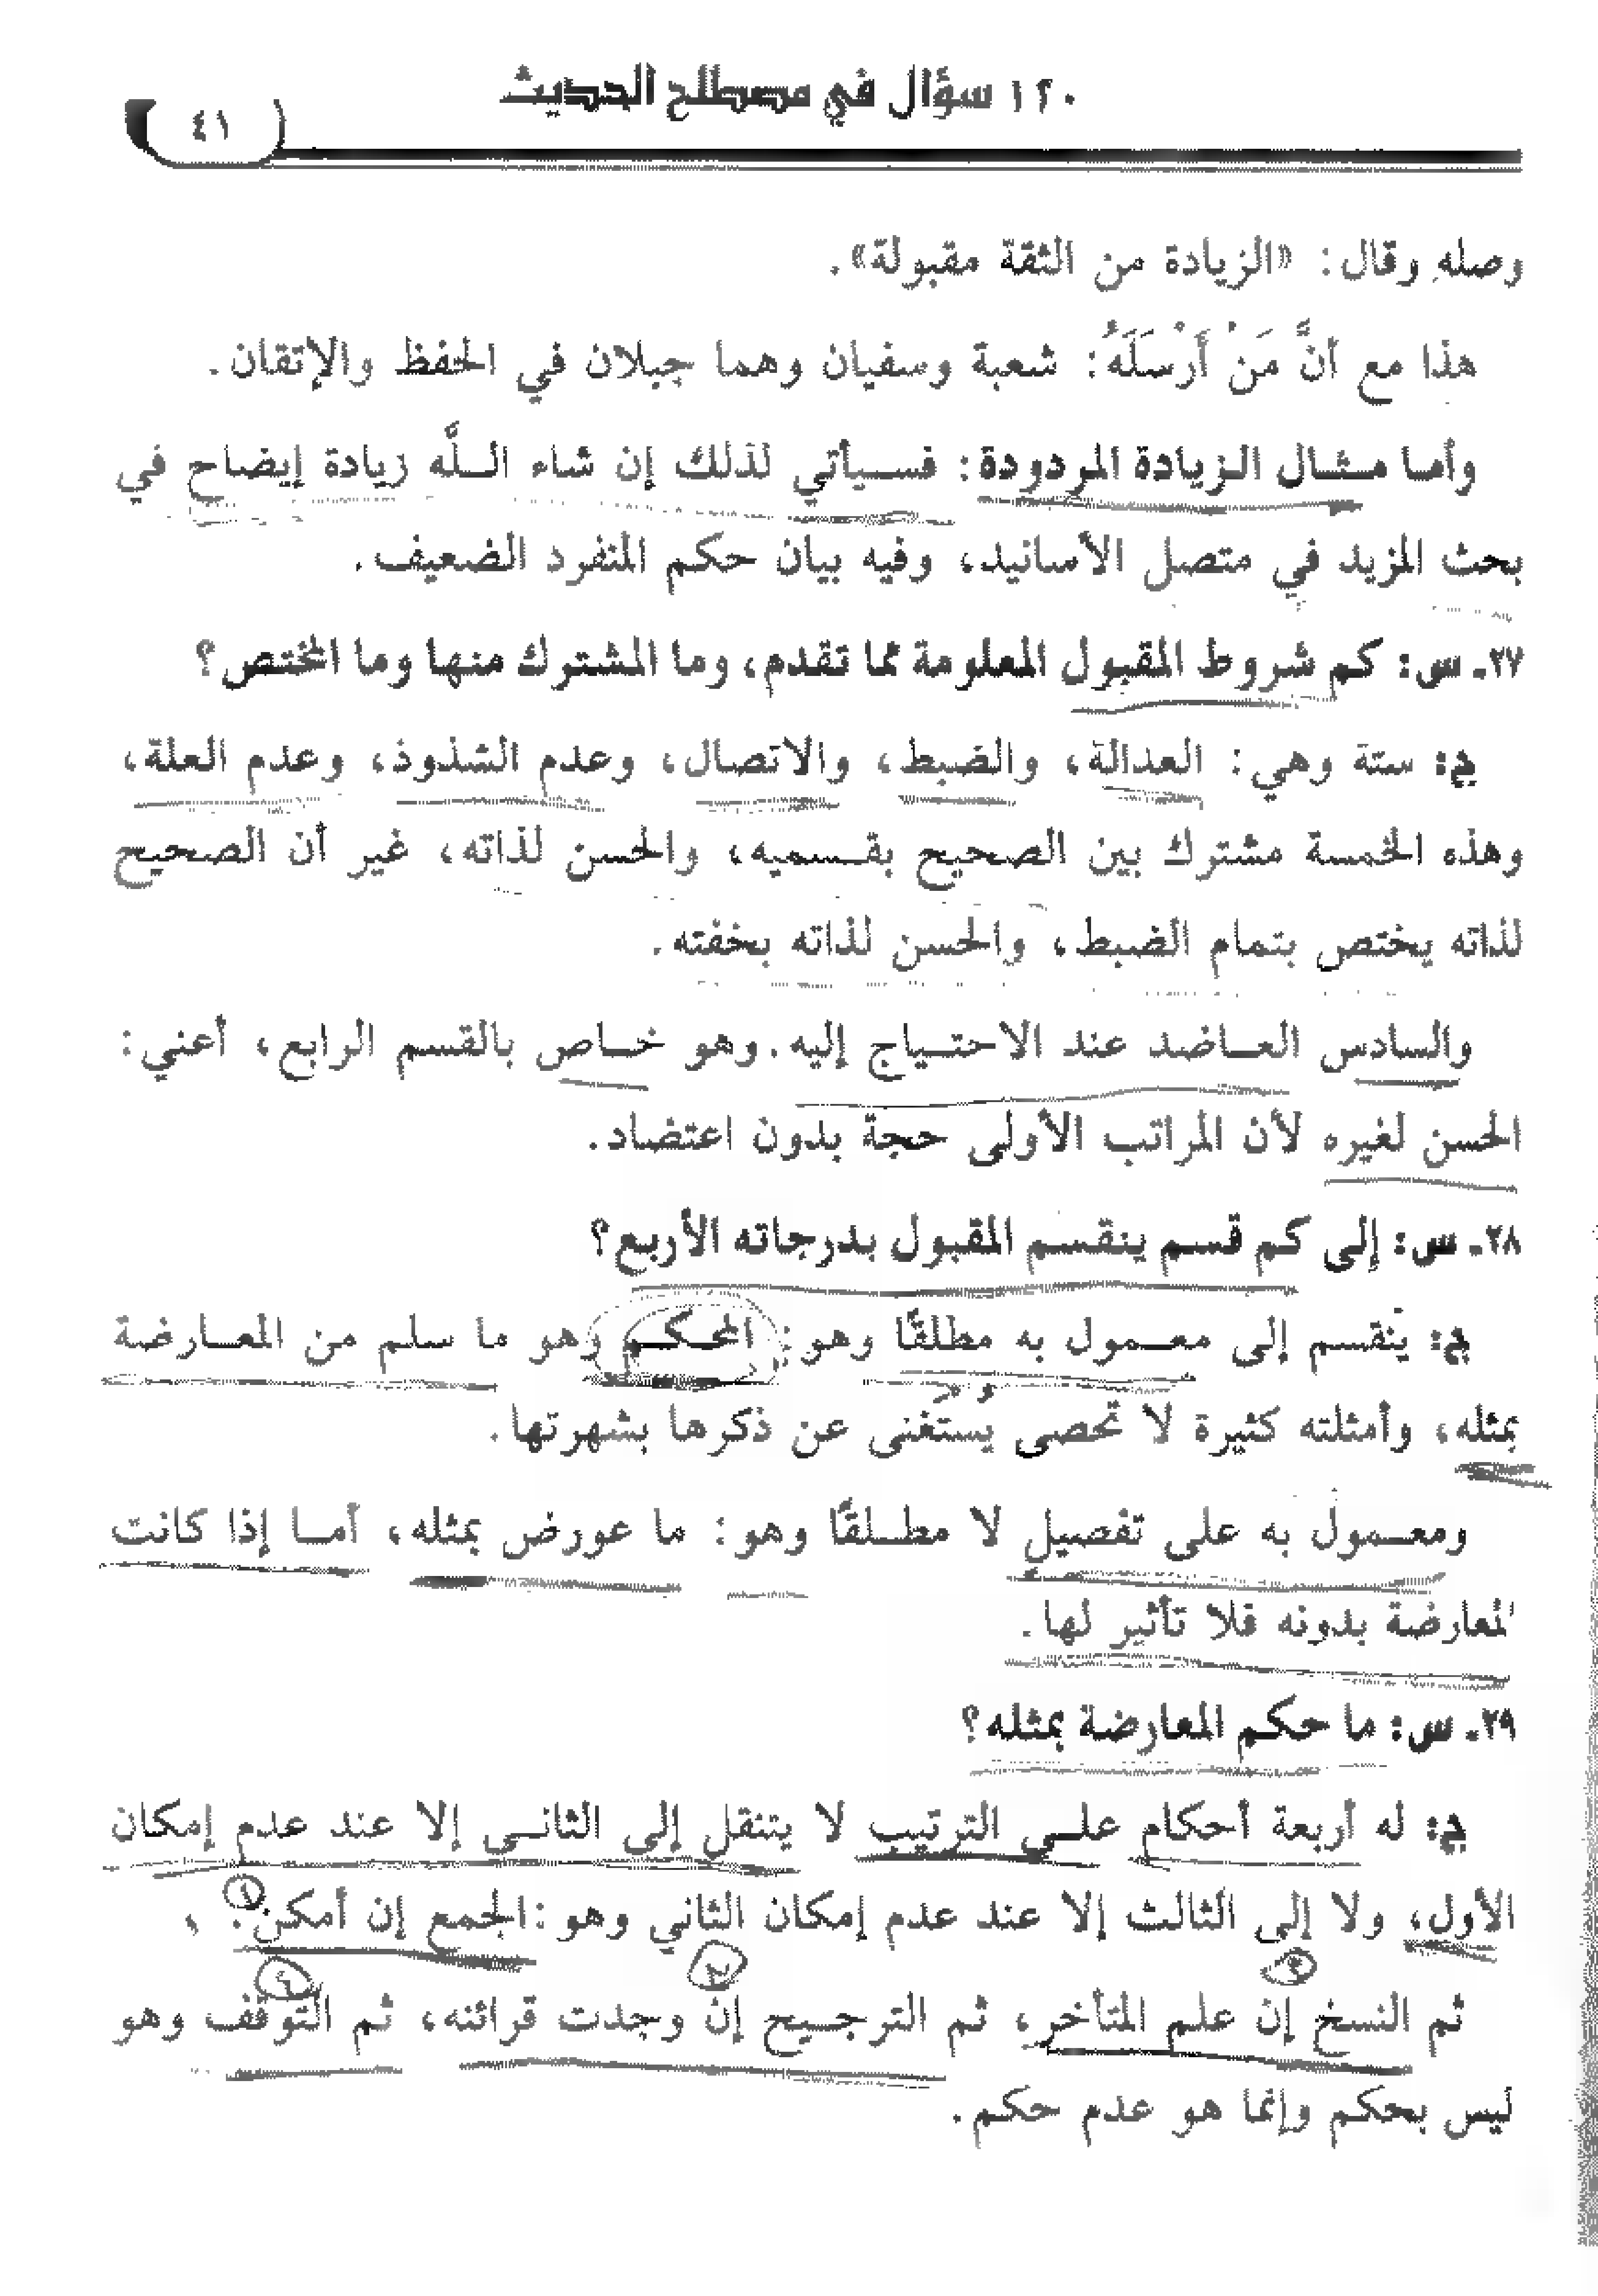 ١٢٠ سؤال في مصطلح الحديث
٤١
وصله وقال: «الزيادة من الثقة مقبولة».
هذا مع أنَّ مَنْ أَرْسَلَهُ: شعبة وسفيان وهما جبلان في الحفظ والإتقان.
وأما مثال الزيادة المردودة: فسيأتي لذلك إن شاء اللَّه زيادة إيضاح في
بحث المزيد في متصل الأسانيد، وفيه بيان حكم المنفرد الضعيف.
٢٧- س: كم شروط المقبول المعلومة مما تقدم، وما المشترك منها وما المختص؟
ج: ستة وهي: العدالة، والضبط، والاتصال، وعدم الشذوذ، وعدم العلة،
وهذه الخمسة مشترك بين الصحيح بقسميه، والحسن لذاته، غير أن الصحيح
لذاته يختص بتمام الضبط، والحسن لذاته بخفته.
والسادس العاضد عند الاحتياج إليه. وهو خاص بالقسم الرابع، أعني:
الحسن لغيره لأن المراتب الأولى حجة بدون اعتضاد.
٢٨- س: إلى كم قسم ينقسم المقبول بدرجاته الأربع؟
ج: ينقسم إلى معمول به مطلقًا وهو: المحكم وهو ما سلم من المعارضة
بمثله، وأمثلته كثيرة لا تُحصى يستغنى عن ذكرها بشهرتها.
ومعمول به على تفصيل لا مطلقًا وهو: ما عورض بمثله، أما إذا كانت
المعارضة بدونه فلا تأثير لها.
٢٩- س: ما حكم المعارضة بمثله؟
ج: له أربعة أحكام على الترتيب لا ينتقل إلى الثاني إلا عند عدم إمكان
الأول، ولا إلى الثالث إلا عند عدم إمكان الثاني وهو: الجمع إن أمكن.
ثم النسخ إن علم المتأخر، ثم الترجيح إن وجدت قرائنه، ثم التوقف وهو
ليس بحكم وإنما هو عدم حكم.